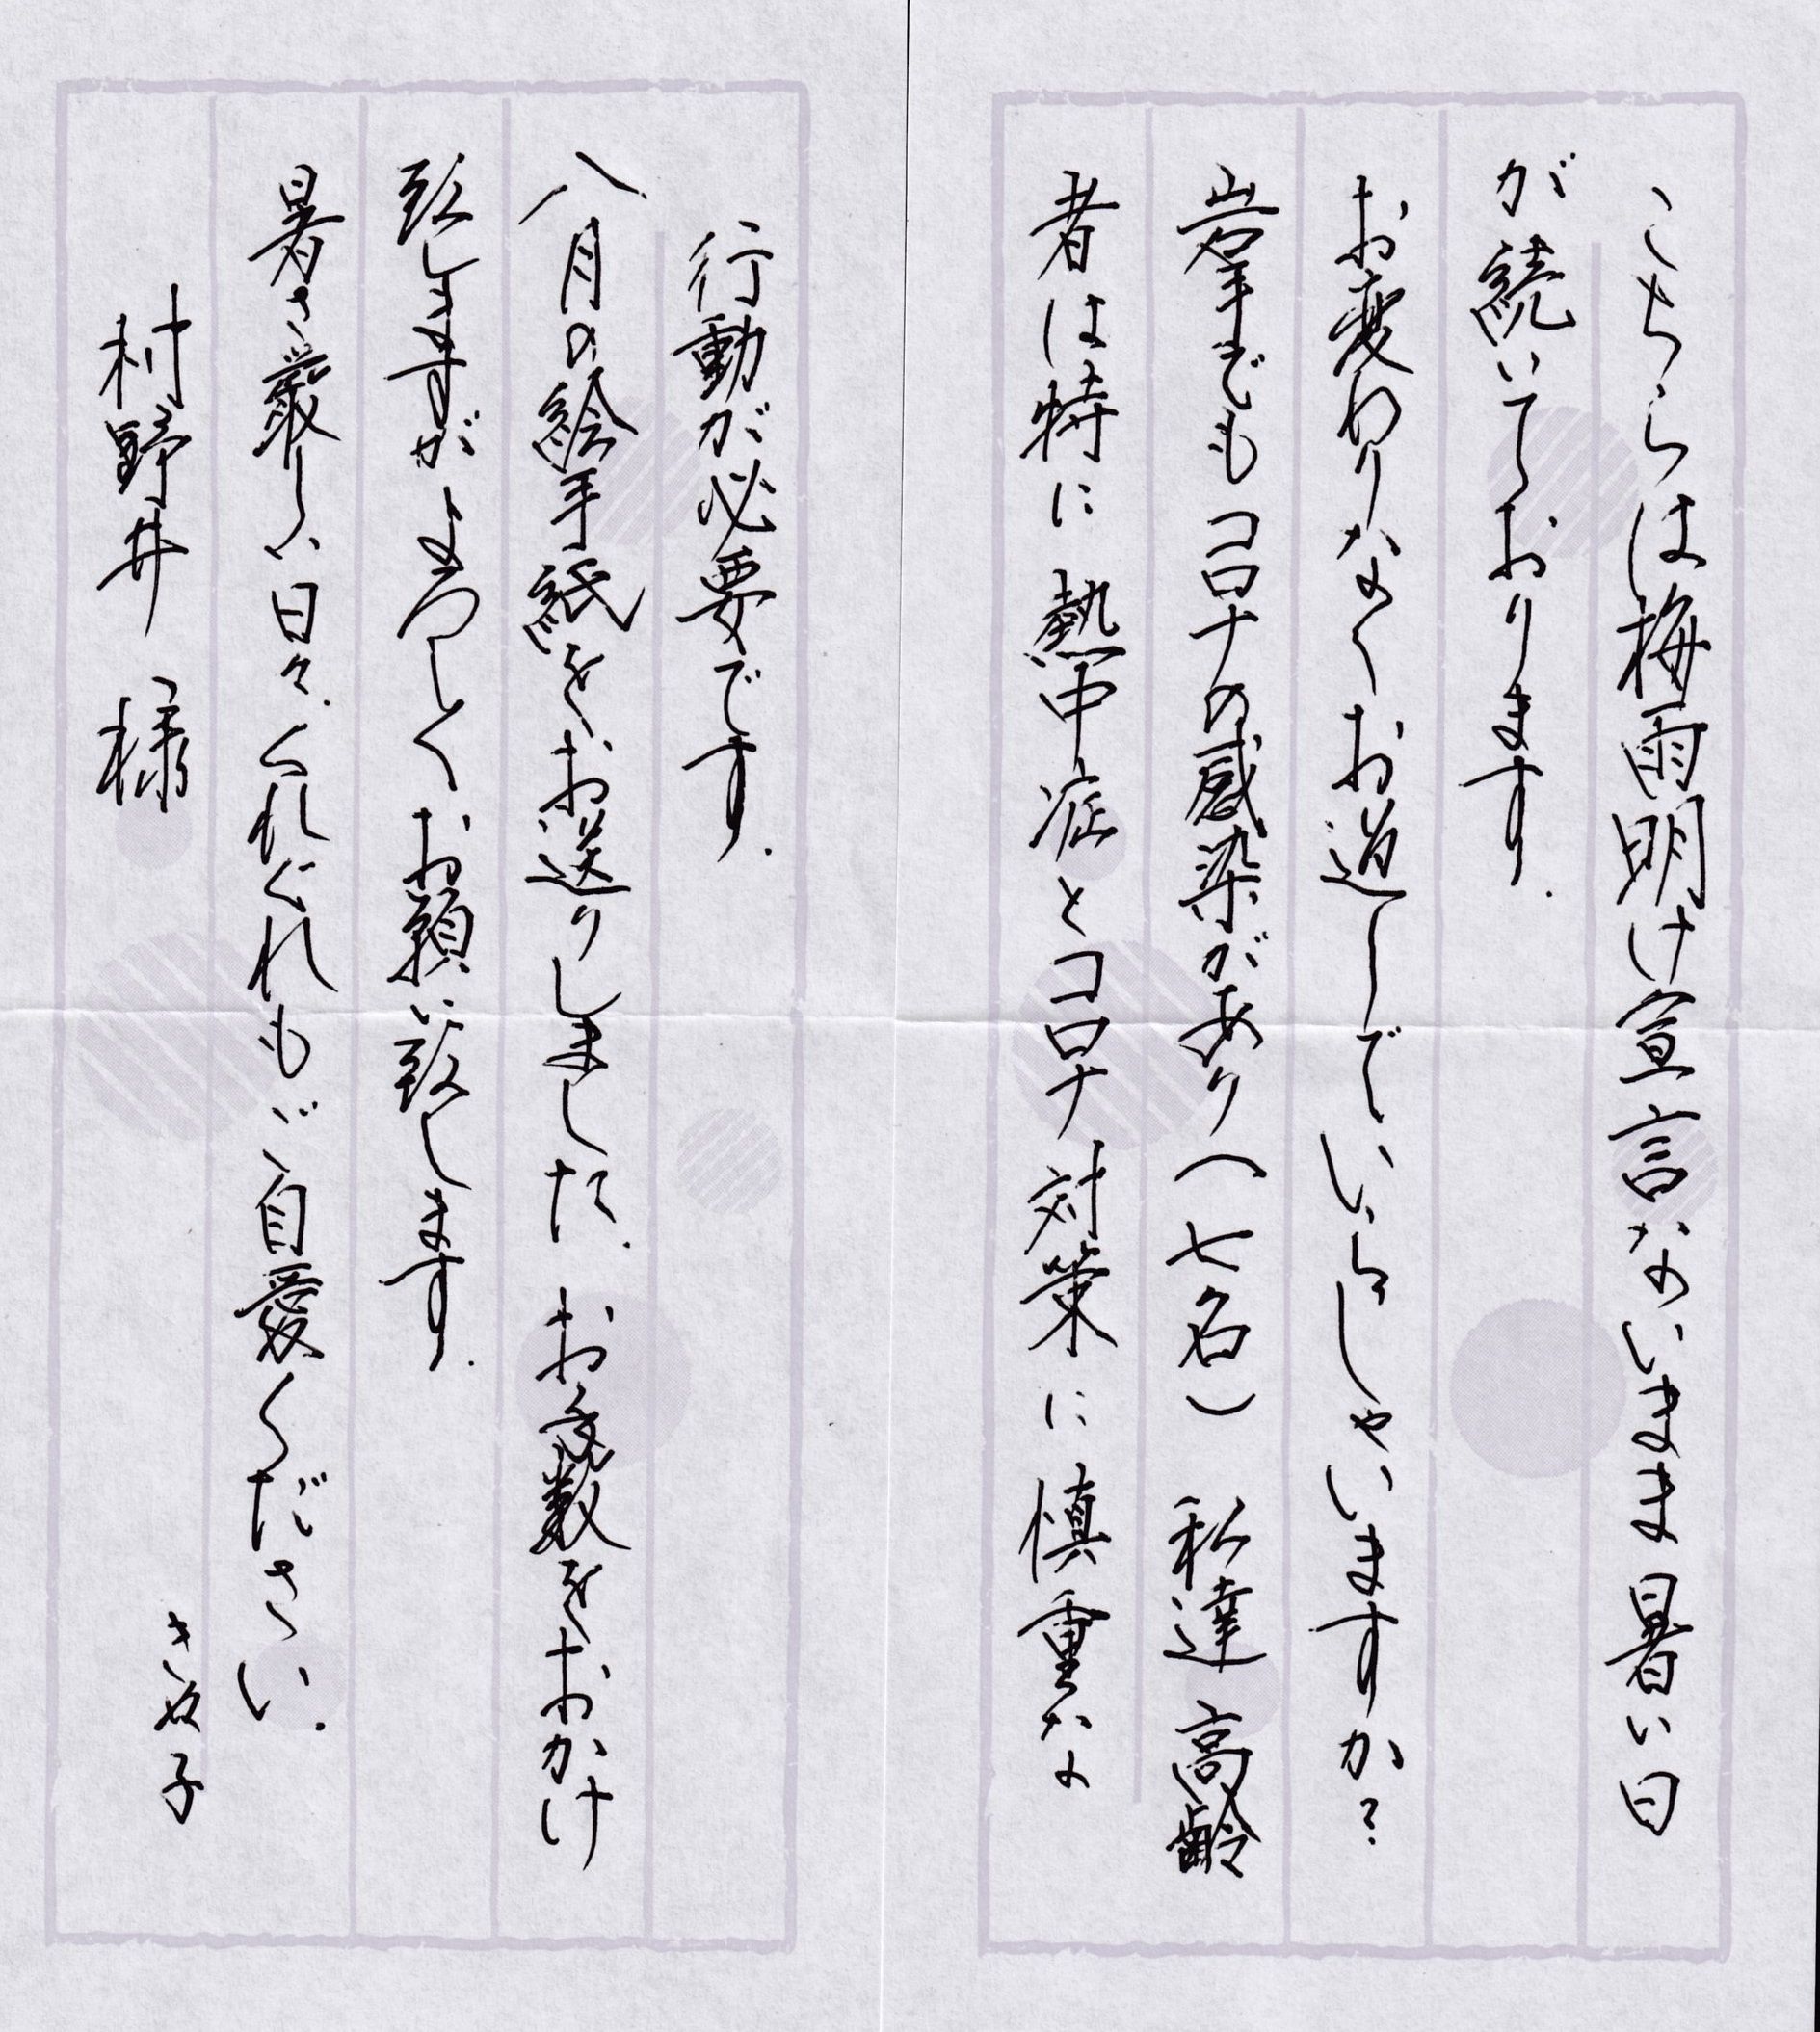 こちらは梅雨明け宣言ないまま暑い日
が続いております.
お変わりなくお過しでいらしゃいますか?
岩手でもコロナの感染があり(七名) 私達高齢
者は特に熱中症とコロナ対策に慎重な
行動が必要です.
八月の絵手紙をお送りしました. お手数をおかけ
致しますがよろしくお願い致します.
暑さ厳しい日々.くれぐれもご自愛ください.
村野井 様